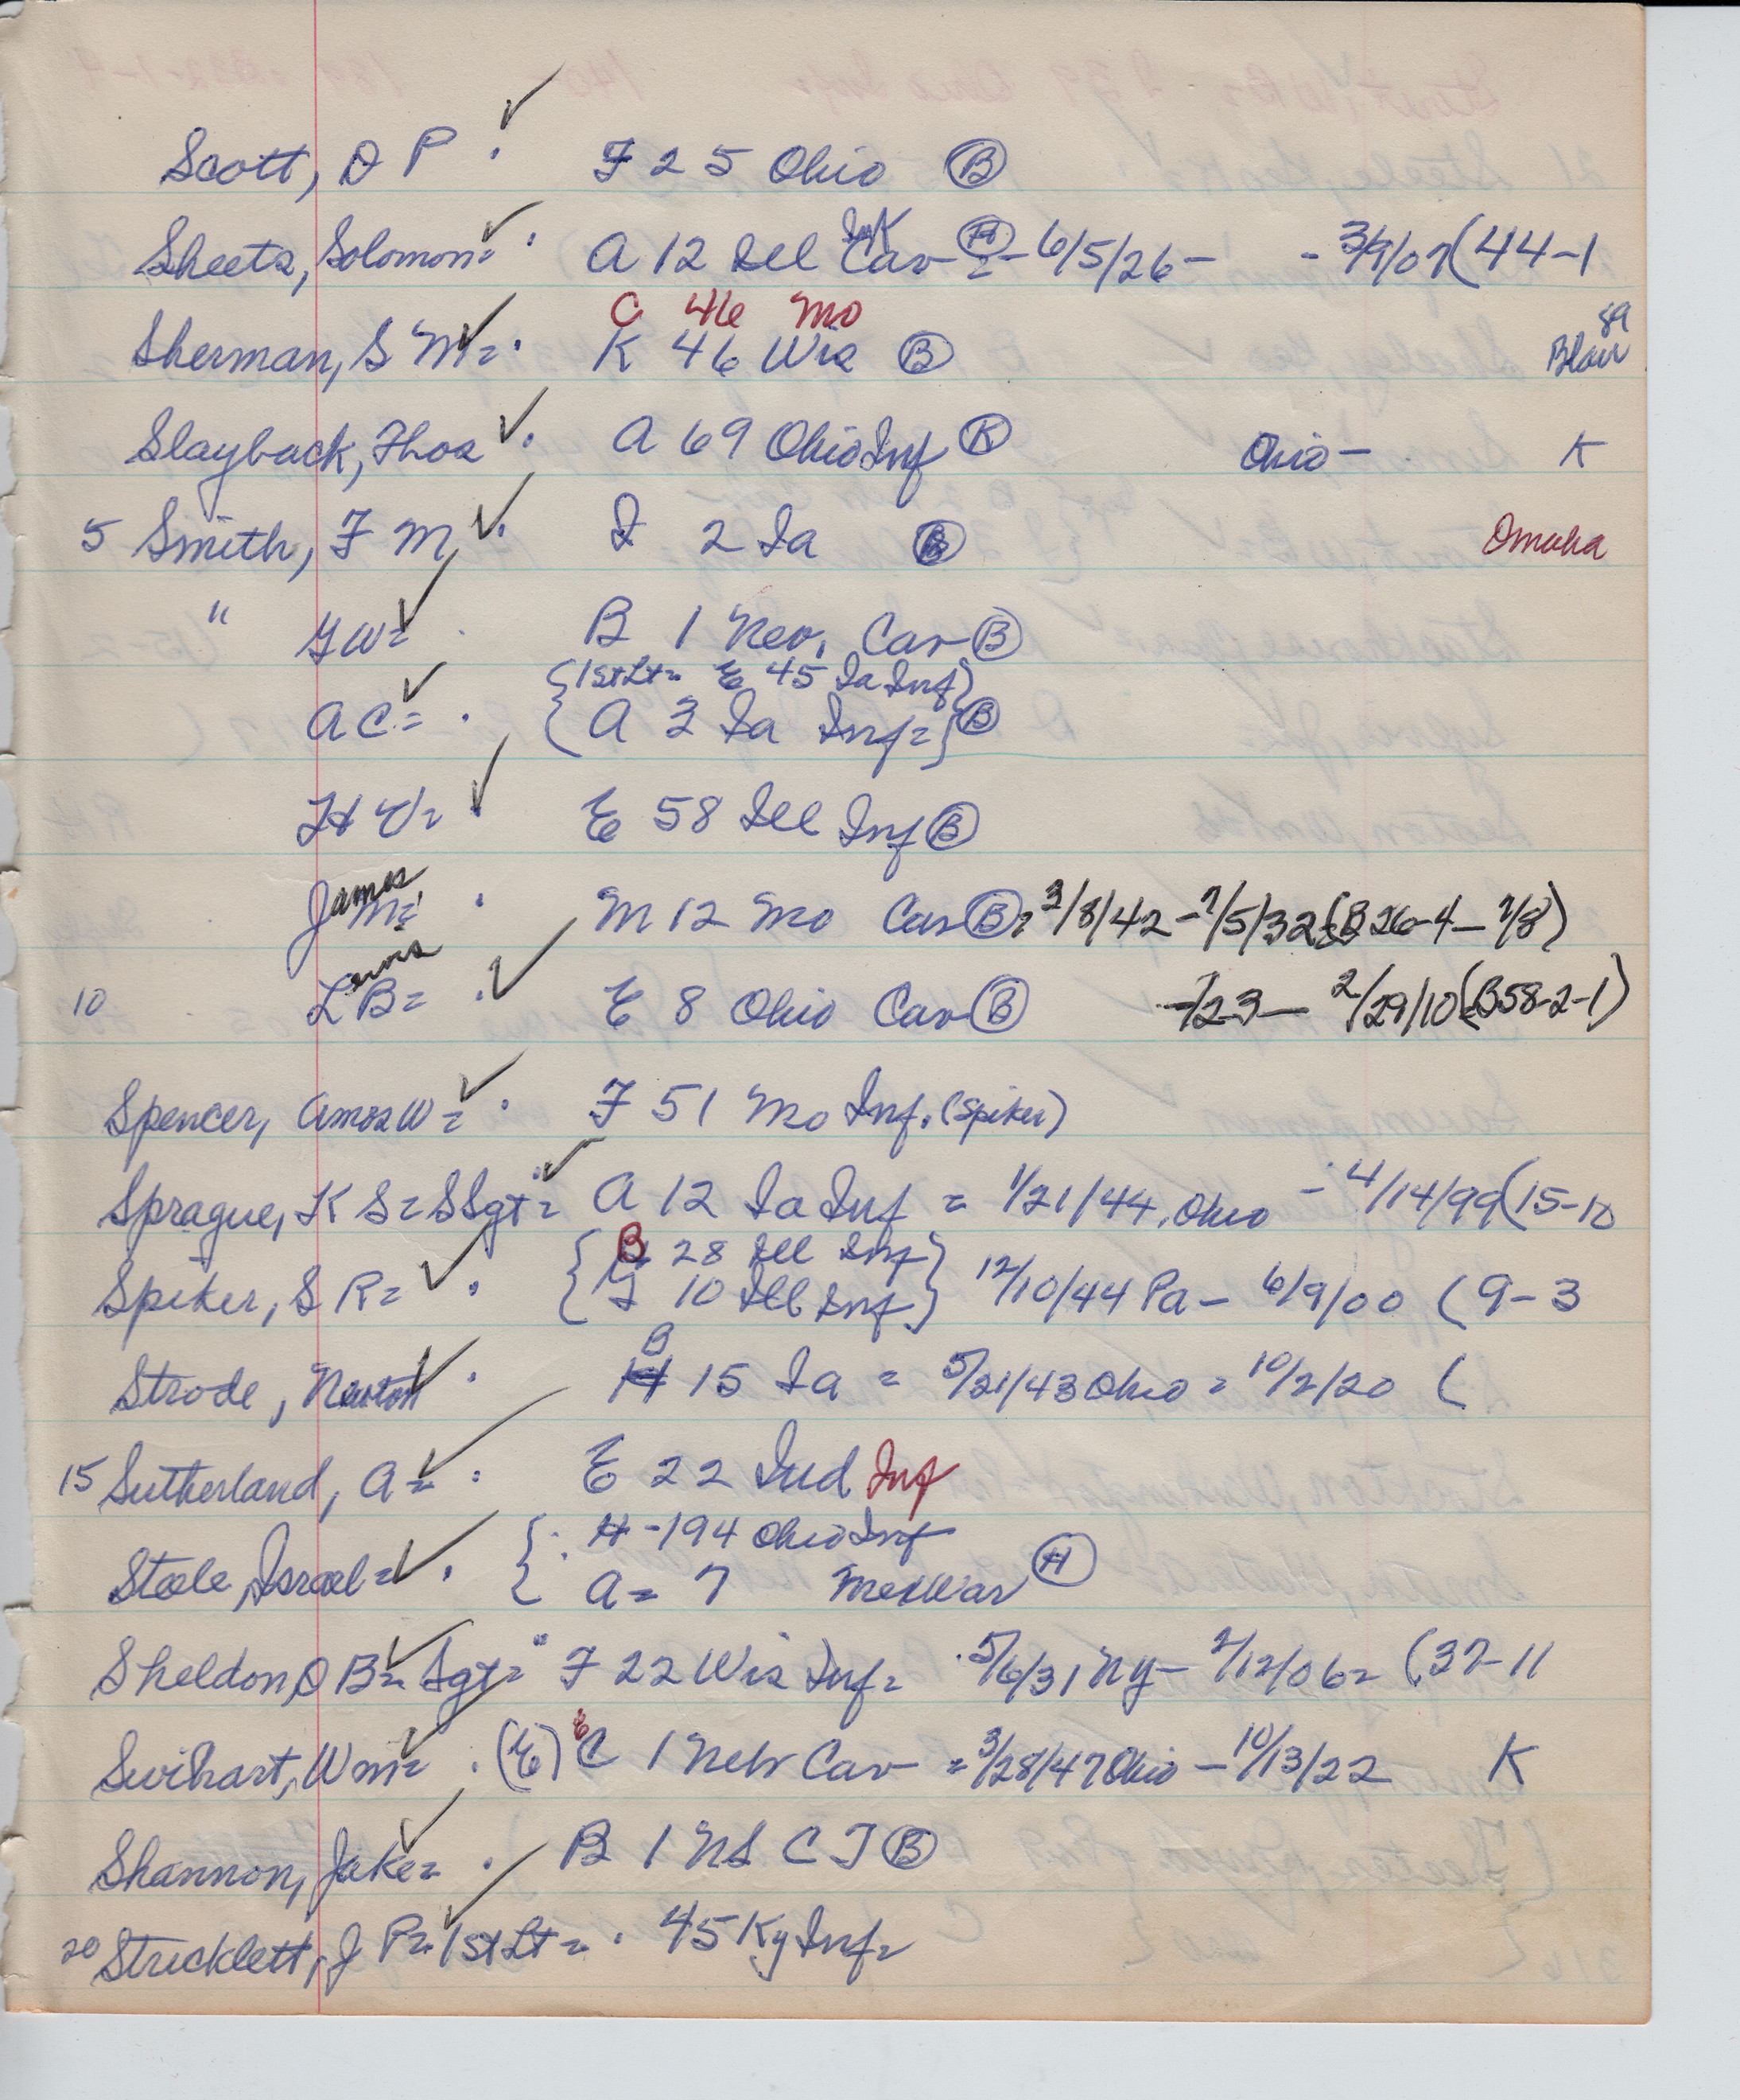 Scott, D P . F 25 Ohio (B)
Sheets, Solomon= . A 12 Ill Cav (H) - 6/5/26 - - 3/9/07 (44-1
C 46 Mo
Sherman, S M= . K 46 Wis (B) 89 Blair
Slayback, Thos . A 69 Ohio Inf (K) Ohio - K
5 Smith, F M . I 2 Ia (B) Omaha
" G W= . B 1 Nev. Cav (B)
{1st Lt= E 45 Ia Inf}
A C= . {A 2 Ia Inf=} (B)
H V= E 58 Ill Inf (B)
James M= . M 12 Mo Cav (B) = 3/8/42 - 7/5/32 (B 26-4- 7/8)
10 Lewis B= . E 8 Ohio Cav (B) -/23 - 2/29/10 (B58-2-1)
Spencer, Amos W= . F 51 Mo Inf. (Spiker)
Sprague, K S= SSgt= A 12 Ia Inf = 1/21/44, Ohio - 4/14/99 (15-10
{B 28 Ill Inf}
Spiker, S R= . {I 10 Ill Inf} 12/10/44 Pa - 6/9/00 (9-3
B
Strode, Newton . H 15 Ia = 5/21/43 Ohio = 10/2/20 (
15 Sutherland, A= . E 22 Ind Inf
{. H -194 Ohio Inf
Steele, Israel= . { A= 7 Mex War (H)
Sheldon, O B= Sgt= " F 22 Wis Inf= . 5/6/31 Ny - 2/12/06= (37-11
Swihart, Wm= . (E) E C 1 Neb Cav = 3/28/47 Ohio - 10/13/22 K
Shannon, Jake= . B 1 NS C T (B)
20 Stricklett, J P= 1st Lt= . 45 Ky Inf=